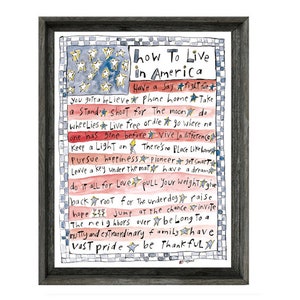 how To Live
in America
Have a say ★ fight fair ★
you gotta believe ★ Phone home ★ Take
a stand ★ shoot for the moon ★ do
wheelies ★ Live free or die ★ go where no
one has gone before ★ Vive la difference ★
Keep a Light on ★ There's no Place Like home ★
Pursue happiness ★ pioneer ★
Leave a key under the mat ★ have a dream ★
do it all for Love ★ pull your weight ★ give
back ★ root for the underdog ★ raise
hope ★ jump at the chance ★ invite
The neighbors over ★ belong to a
nutty and extraordinary family ★ have
vast pride ★ be thankful ★